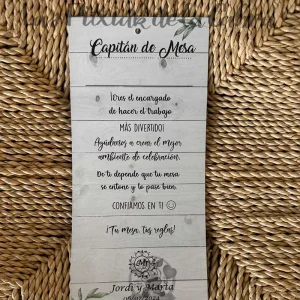 Capitán de Mesa
¡Eres el encargado
de hacer el trabajo
MÁS DIVERTIDO!
Ayúdanos a crear el mejor
ambiente de celebración.
De ti depende que tu mesa
se entone y lo pase bien.
CONFIAMOS EN TI ☺
¡Tu mesa, tus reglas!
Jordi y Marta